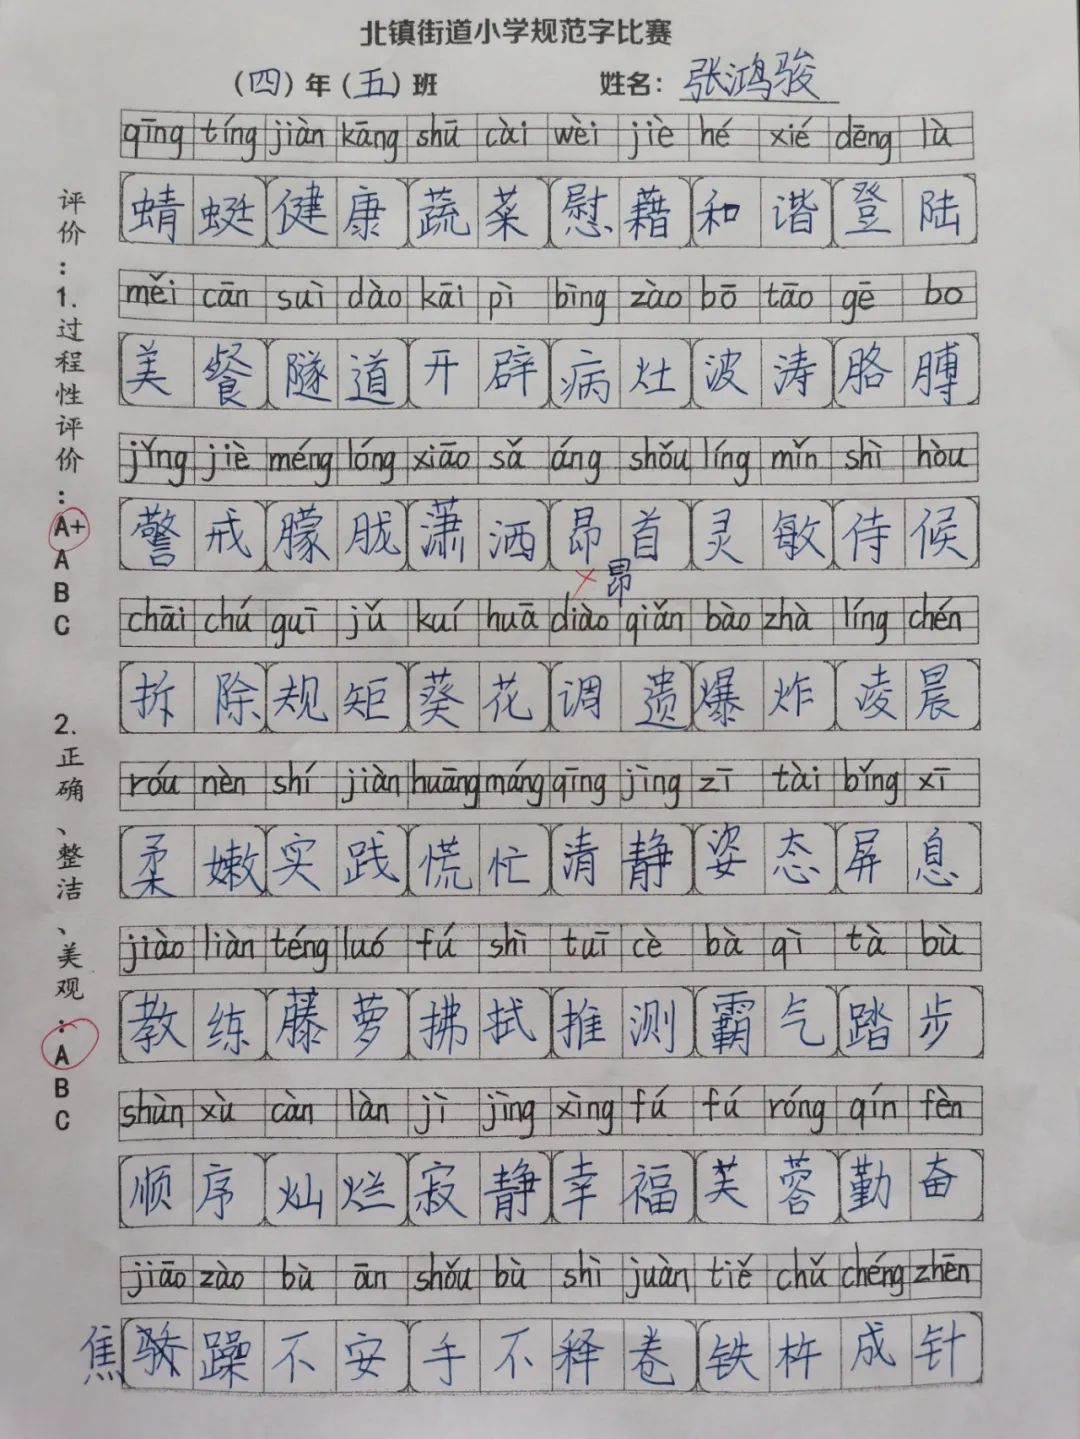 北镇街道小学规范字比赛
（四）年（五）班 姓名：张鸿骏
qīng tíng jiàn kāng shū cài wèi jiè hé xié dēng lù
蜻蜓 健康 蔬菜 慰藉 和谐 登陆
měi cān suì dào kāi pì bìng zào bō tāo gē bo
美餐 隧道 开辟 病灶 波涛 胳膊
jǐng jiè méng lóng xiāo sǎ áng shǒu líng mǐn shì hòu
警戒 朦胧 潇洒 昂首 灵敏 侍候
昂
chāi chú guī jǔ kuí huā diào qiǎn bào zhà líng chén
拆除 规矩 葵花 调遗 爆炸 凌晨
róu nèn shí jiàn huāng máng qīng jìng zī tài bǐng xī
柔嫩 实践 慌忙 清静 姿态 屏息
jiào liàn téng luó fú shì tuī cè bà qì tà bù
教练 藤萝 拂拭 推测 霸气 踏步
shùn xù càn làn jì jìng xìng fú fú róng qín fèn
顺序 灿烂 寂静 幸福 芙蓉 勤奋
jiāo zào bù ān shǒu bù shì juàn tiě chǔ chéng zhēn
焦 骄躁不安 手不释卷 铁杵成针
评价：1.过程性评价：A+ A B C
2.正确、整洁、美观：A B C